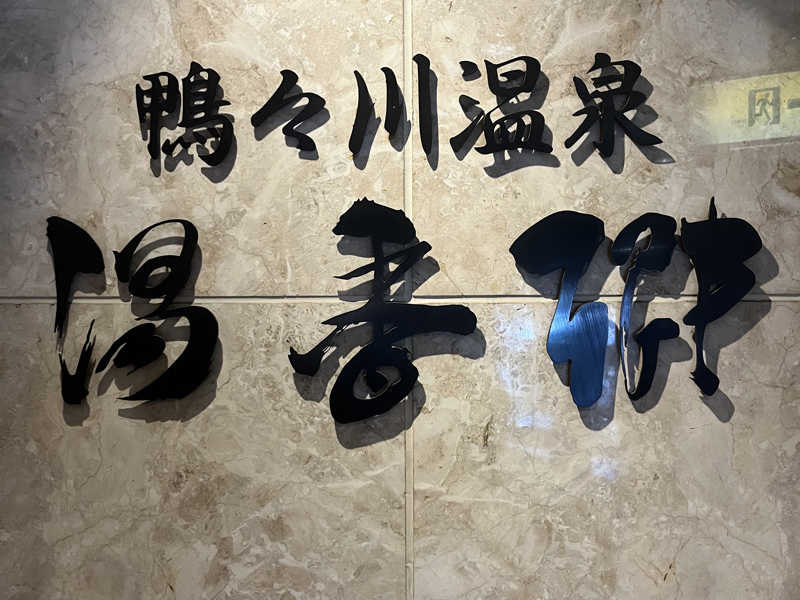 鴨々川温泉
湯香郷